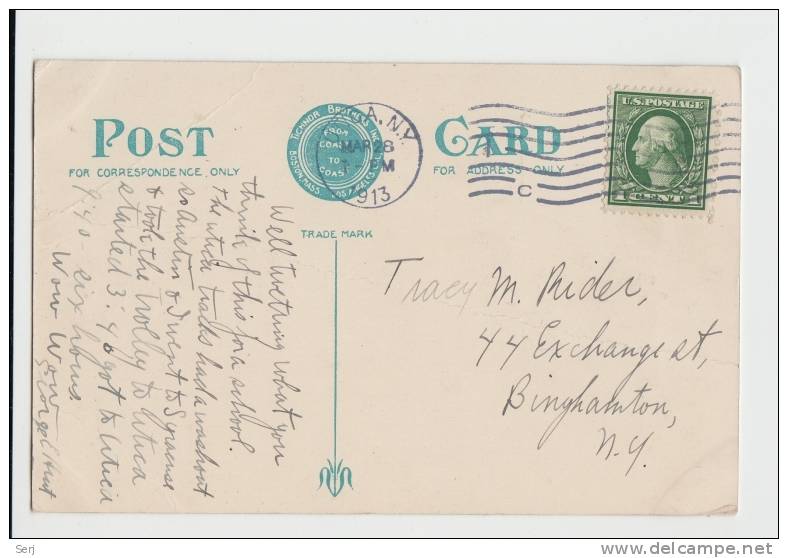 POST
CARD
FOR CORRESPONDENCE ONLY
FOR ADDRESS ONLY
TICHNOR BROTHERS INC.
BOSTON, MASS. LOS ANGELES
FROM
COAST
TO
COAST
TRADE MARK
A. N.Y.
MAR 28
PM
1913
C
U.S. POSTAGE
1 CENT 1
Well what you
think of this for a school.
The Utica tracks had a washout
so Austin & I went to Syracuse
& took the trolley to Utica
started 3:40 got to Utica
9:40 - six hours
Wow Wow
George E Hunt
Tracy M. Rider,
44 Exchange st,
Binghamton,
N.Y.
Serj
www.delcampe.net